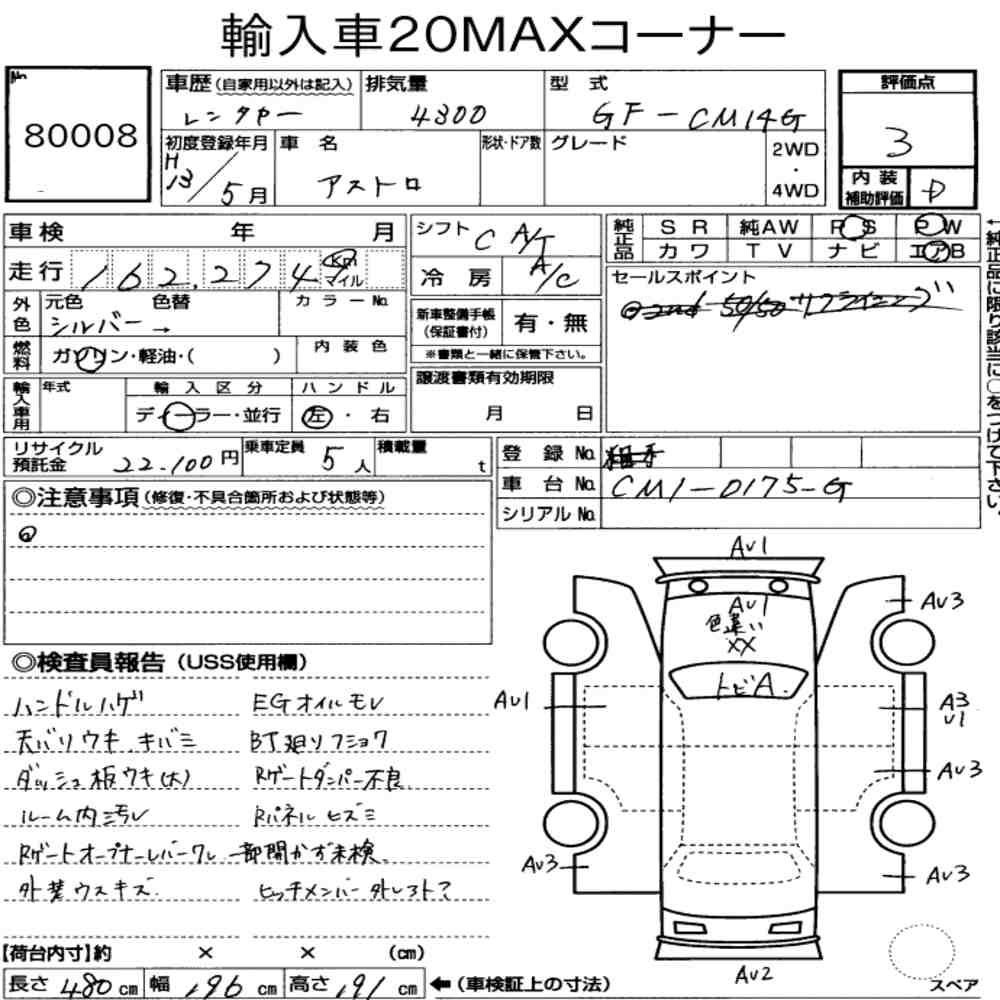 輸入車20MAXコーナー
No.
80008
車歴(自家用以外は記入)
レンタカー
排気量
4300
型式
GF-CM14G
評価点
3
内装補助評価
D
初度登録年月
H13/5月
車名
アストロ
形状・ドア数
グレード
2WD・4WD
車検 年 月
走行 162,274 Km マイル
外色
元色 色替
シルバー→
カラーNo.
燃料
ガソリン・軽油・( )
内装色
輸入車用
年式
輸入区分
ディーラー・並行
ハンドル
左・右
シフト
C A/T
冷房
A/C
新車整備手帳(保証書付)
有・無
※書類と一緒に保管下さい。
譲渡書類有効期限
月 日
純正品
SR 純AW PS PW
カワ TV ナビ エアB
←純正品に限り該当に○をつけて下さい。
セールスポイント
リサイクル預託金
22,100円
乗車定員
5人
積載量
t
登録No.
車台No.
CM1-0175-G
シリアルNo.
◎注意事項(修復・不具合箇所および状態等)
◎検査員報告(USS使用欄)
ハンドルハゲ
EGオイルモレ
天バリウキ、キバミ
BT廻リフショク
ダッシュ板ウキ(大)
Rゲートダンパー不良
ルーム内ヨゴレ
Rパネルヒズミ
Rゲートオープナーレバーワレ 一部開かず未検
外装ウスキズ
ヒッチメンバー外レスト?
【荷台内寸】約 × × (cm)
長さ480cm 幅196cm 高さ191cm
←(車検証上の寸法)
AU1
AU1
色違い
XX
トビA
AU3
AU1
A3
U1
AU3
AU3
AU3
AU2
スペア